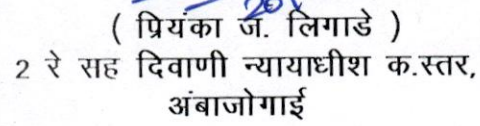 ( प्रियंका ज. लिगाडे )
2 रे सह दिवाणी न्यायाधीश क.स्तर,
अंबाजोगाई